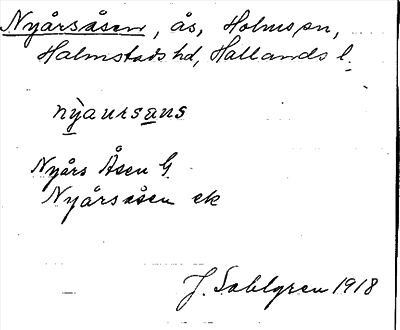 Nyårsåsen, ås, Holms sn,
Halmstads hd, Hallands l.
nyaursans
Nyårs Åsen G.
Nyårsåsen ek
J. Sahlgren 1918